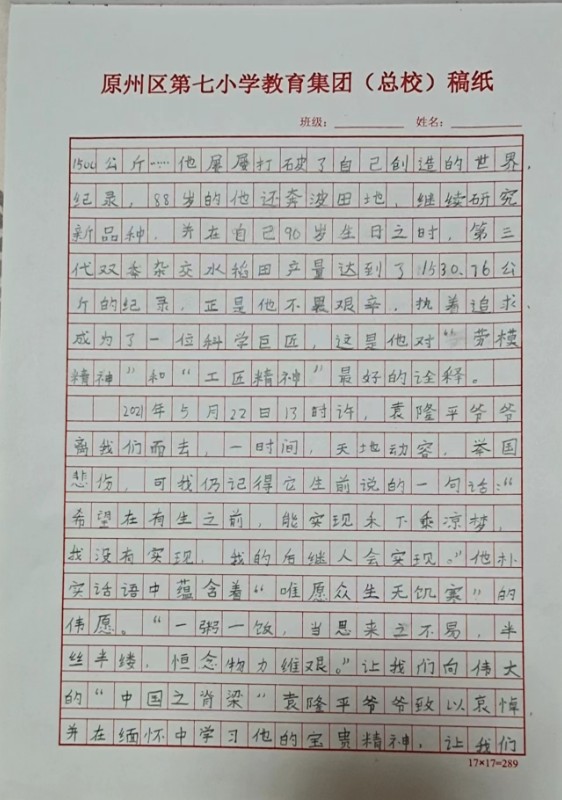 原州区第七小学教育集团（总校）稿纸
班级：　姓名：
1500公斤……他屡屡打破了自己创造的世界
纪录，88岁的他还奔波田地，继续研究
新品种，并在自己90岁生日之时，第三
代双季杂交水稻田产量达到了1530.76公
斤的纪录，正是他不畏艰辛，执着追求，
成为了一位科学巨匠，这是他对“劳模
精神”和“工匠精神”最好的诠释。
2021年5月22日13时许，袁隆平爷爷
离我们而去，一时间，天地动容，举国
悲伤，可我仍记得它生前说的一句话：“
希望在有生之前，能实现禾下乘凉梦，
我没有实现，我的后继人会实现。”他朴
实话语中蕴含着“唯愿众生无饥寒”的
伟愿。“一粥一饭，当思来之不易，半
丝半缕，恒念物力维艰。”让我们向伟大
的“中国之脊梁”袁隆平爷爷致以哀悼，
并在缅怀中学习他的宝贵精神，让我们
17×17=289